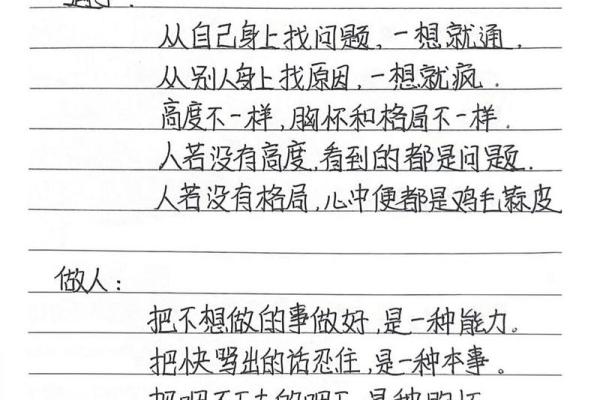 从自己身上找问题，一想就通，
从别人身上找原因，一想就疯．
高度不一样，胸怀和格局不一样．
人若没有高度，看到的都是问题．
人若没有格局，心中便都是鸡毛蒜皮
做人：
把不想做的事做好，是一种能力。
把快骂出的话忍住，是一种本事。